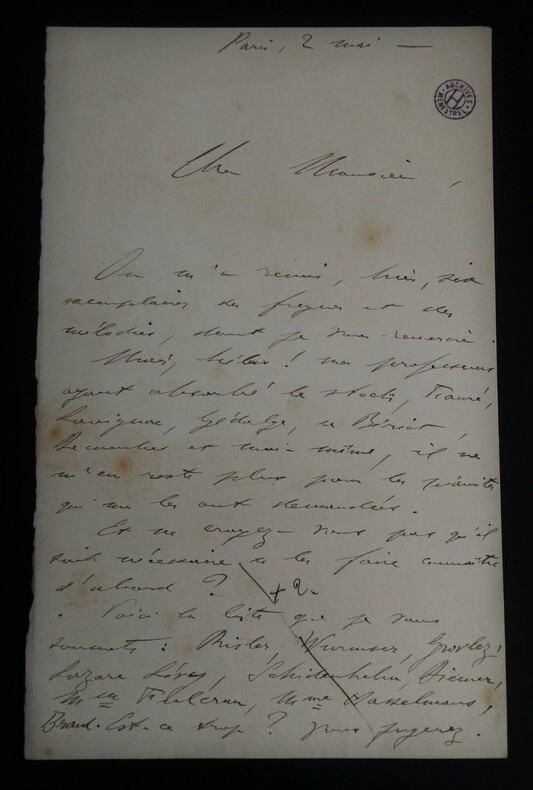 Paris, 2 mai —
ARCHIVES
MENESTREL
H
Cher Monsieur,
On m'a remis, hier, six
exemplaires des fugues et des
mélodies, dont je vous remercie.
Mais, hélas ! mes professeurs
ayant absorbé le stock, Fauré,
Lavignac, Gédalge, de Bériot,
et moi-même, il ne
m'en reste plus pour les pianistes
qui me les ont demandées.
Et ne croyez-vous pas qu'il
soit nécessaire de les faire connaître
d'abord ?
+ 2
Voici la liste que je vous
soumets : Risler, Wurmser, Grovlez,
Lazare Lévy, Schidenhelm, Diémer,
Mme , Mme Hasselmans,
Braud. Est-ce trop ? Vous jugerez.